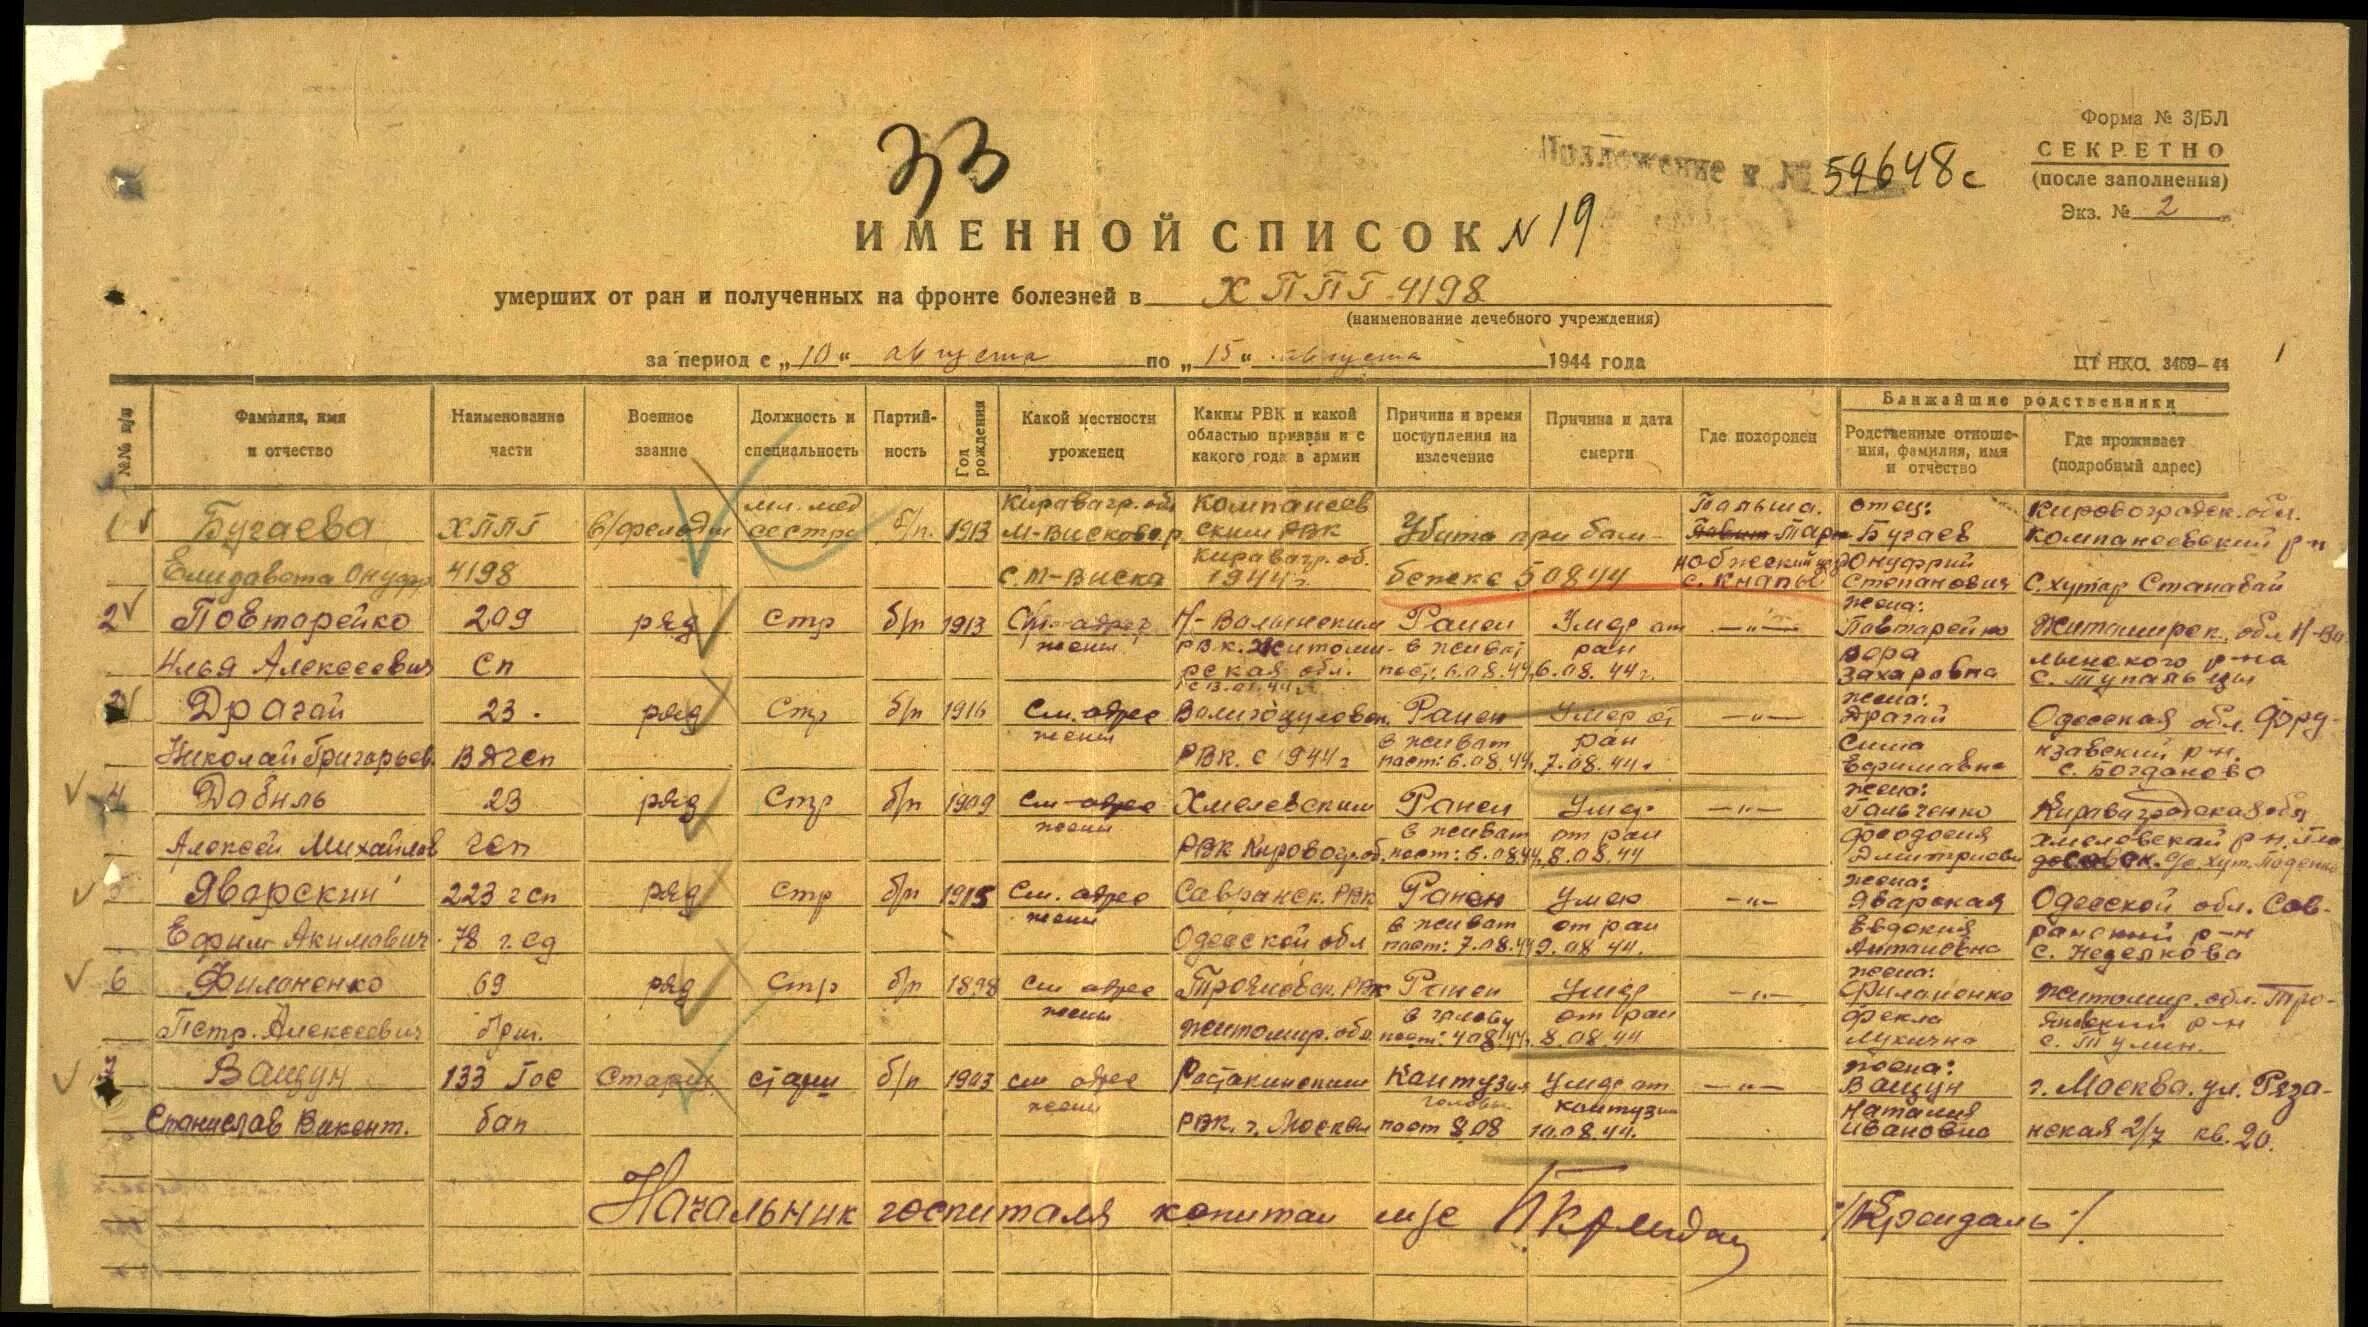 Форма № 3/БЛ
СЕКРЕТНО
(после заполнения)
Экз. № 2
33
Приложение к № 59648с
ИМЕННОЙ СПИСОК N 19
умерших от ран и полученных на фронте болезней в ХППГ 4198
(наименование лечебного учреждения)
за период с „10“ августа по „15“ августа 1944 года
ЦТ НКО. 3469-44
№№ п/п Фамилия, имя и отчество Наименование части Военное звание Должность и специальность Партий-ность Год рождения Какой местности уроженец Каким РВК и какой областью призван и с какого года в армии Причина и время поступления на излечение Причина и дата смерти Где похоронен Ближайшие родственники
Родственные отноше-ния, фамилия, имя и отчество Где проживает (подробный адрес)
1 Бугаева ХППГ мл. мед сестра б/п. 1913 Кировагр. обл М-Висковс р Компанеев ским РВК Убита при бом- Польша. отец: Бугаев Кировоградск. обл. Компанеевский р-н
Елизавета Онуфр 4198 с. М-Виска Кировагр. об. 1944 г. бежке 5 08 44 с. Кнапы Онуфрий Степанович С. хутор
2 Повторейко 209 ряд Стр б/п 1913 См. адрес жены Н-Волынским Ранен Умер от —„— жена: Повторейко Житомирск. обл Н-Во
Илья Алексеевич сп РВК. Житоми-рская обл. в живот пост: 6.08.44г ран 6.08.44г. Вера Захаровна лынского р-на с.
3 Драгай 23. ряд Стр б/п 1916 См. адрес жены Ранен Умер от —„— жена: Драгай Одесская обл. Фру-
Николай Григорьев. гсп РВК. с 1944г в живот пост: 6.08.44г. ран 7.08.44г Ефимовна нзавский р-н. с. Богданово
4 Дабиль 23 ряд Стр б/п 1909 См адрес жены Хмелевским Ранен Умер —„— жена: Гальченко Кировоградская обл
Алексей Михайлов гсп РВК Кировогр. об. в живот пост: 6.08.44г. от ран 8.08.44 Феодосия Дмитриевн Хмелевской р-н.
5 Яварский 223 гсп ряд Стр б/п 1915 См. адрес жены Савранск. РВК Ранен Умер —„— жена: Яварская Одесской обл. Сав-
Ефим Акимович 78 г.сд Одесской обл в живот пост: 7.08.44 от ран 9.08.44. Евдокия Антановна ранский р-н с. Неделкова
6 Филоненко 69 ряд Стр б/п 1898 См адрес жены Трояновск. РВК Ранен Умер —„— жена: Филоненко Житомир. обл. Тро-
Петр. Алексеевич бриг. Житомир. обл. в голову пост: 4.08.44г. от ран 8.08.44 Фекла яновский р-н с.
Ващун 133 старш б/п 1903 см адрес жены Растакинским Контузия головы Умер от —„— жена: Ващун г. Москва. ул. Ряза-
Станислав Викент. бап РВК. г. Москвы пост 8.08 контузии 10.08.44г. Наталия Ивановна нская 2/7 кв. 20.
Начальник госпиталя капитан м/с /Крендаль/